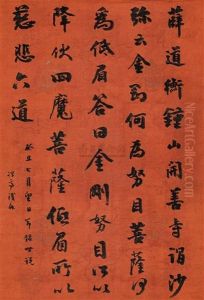 薛道衡鍾山開善寺謂沙
弥云金剛何為努目菩薩何
為低眉答曰金剛努目所以
降伏四魔菩薩低眉所以
慈悲六道